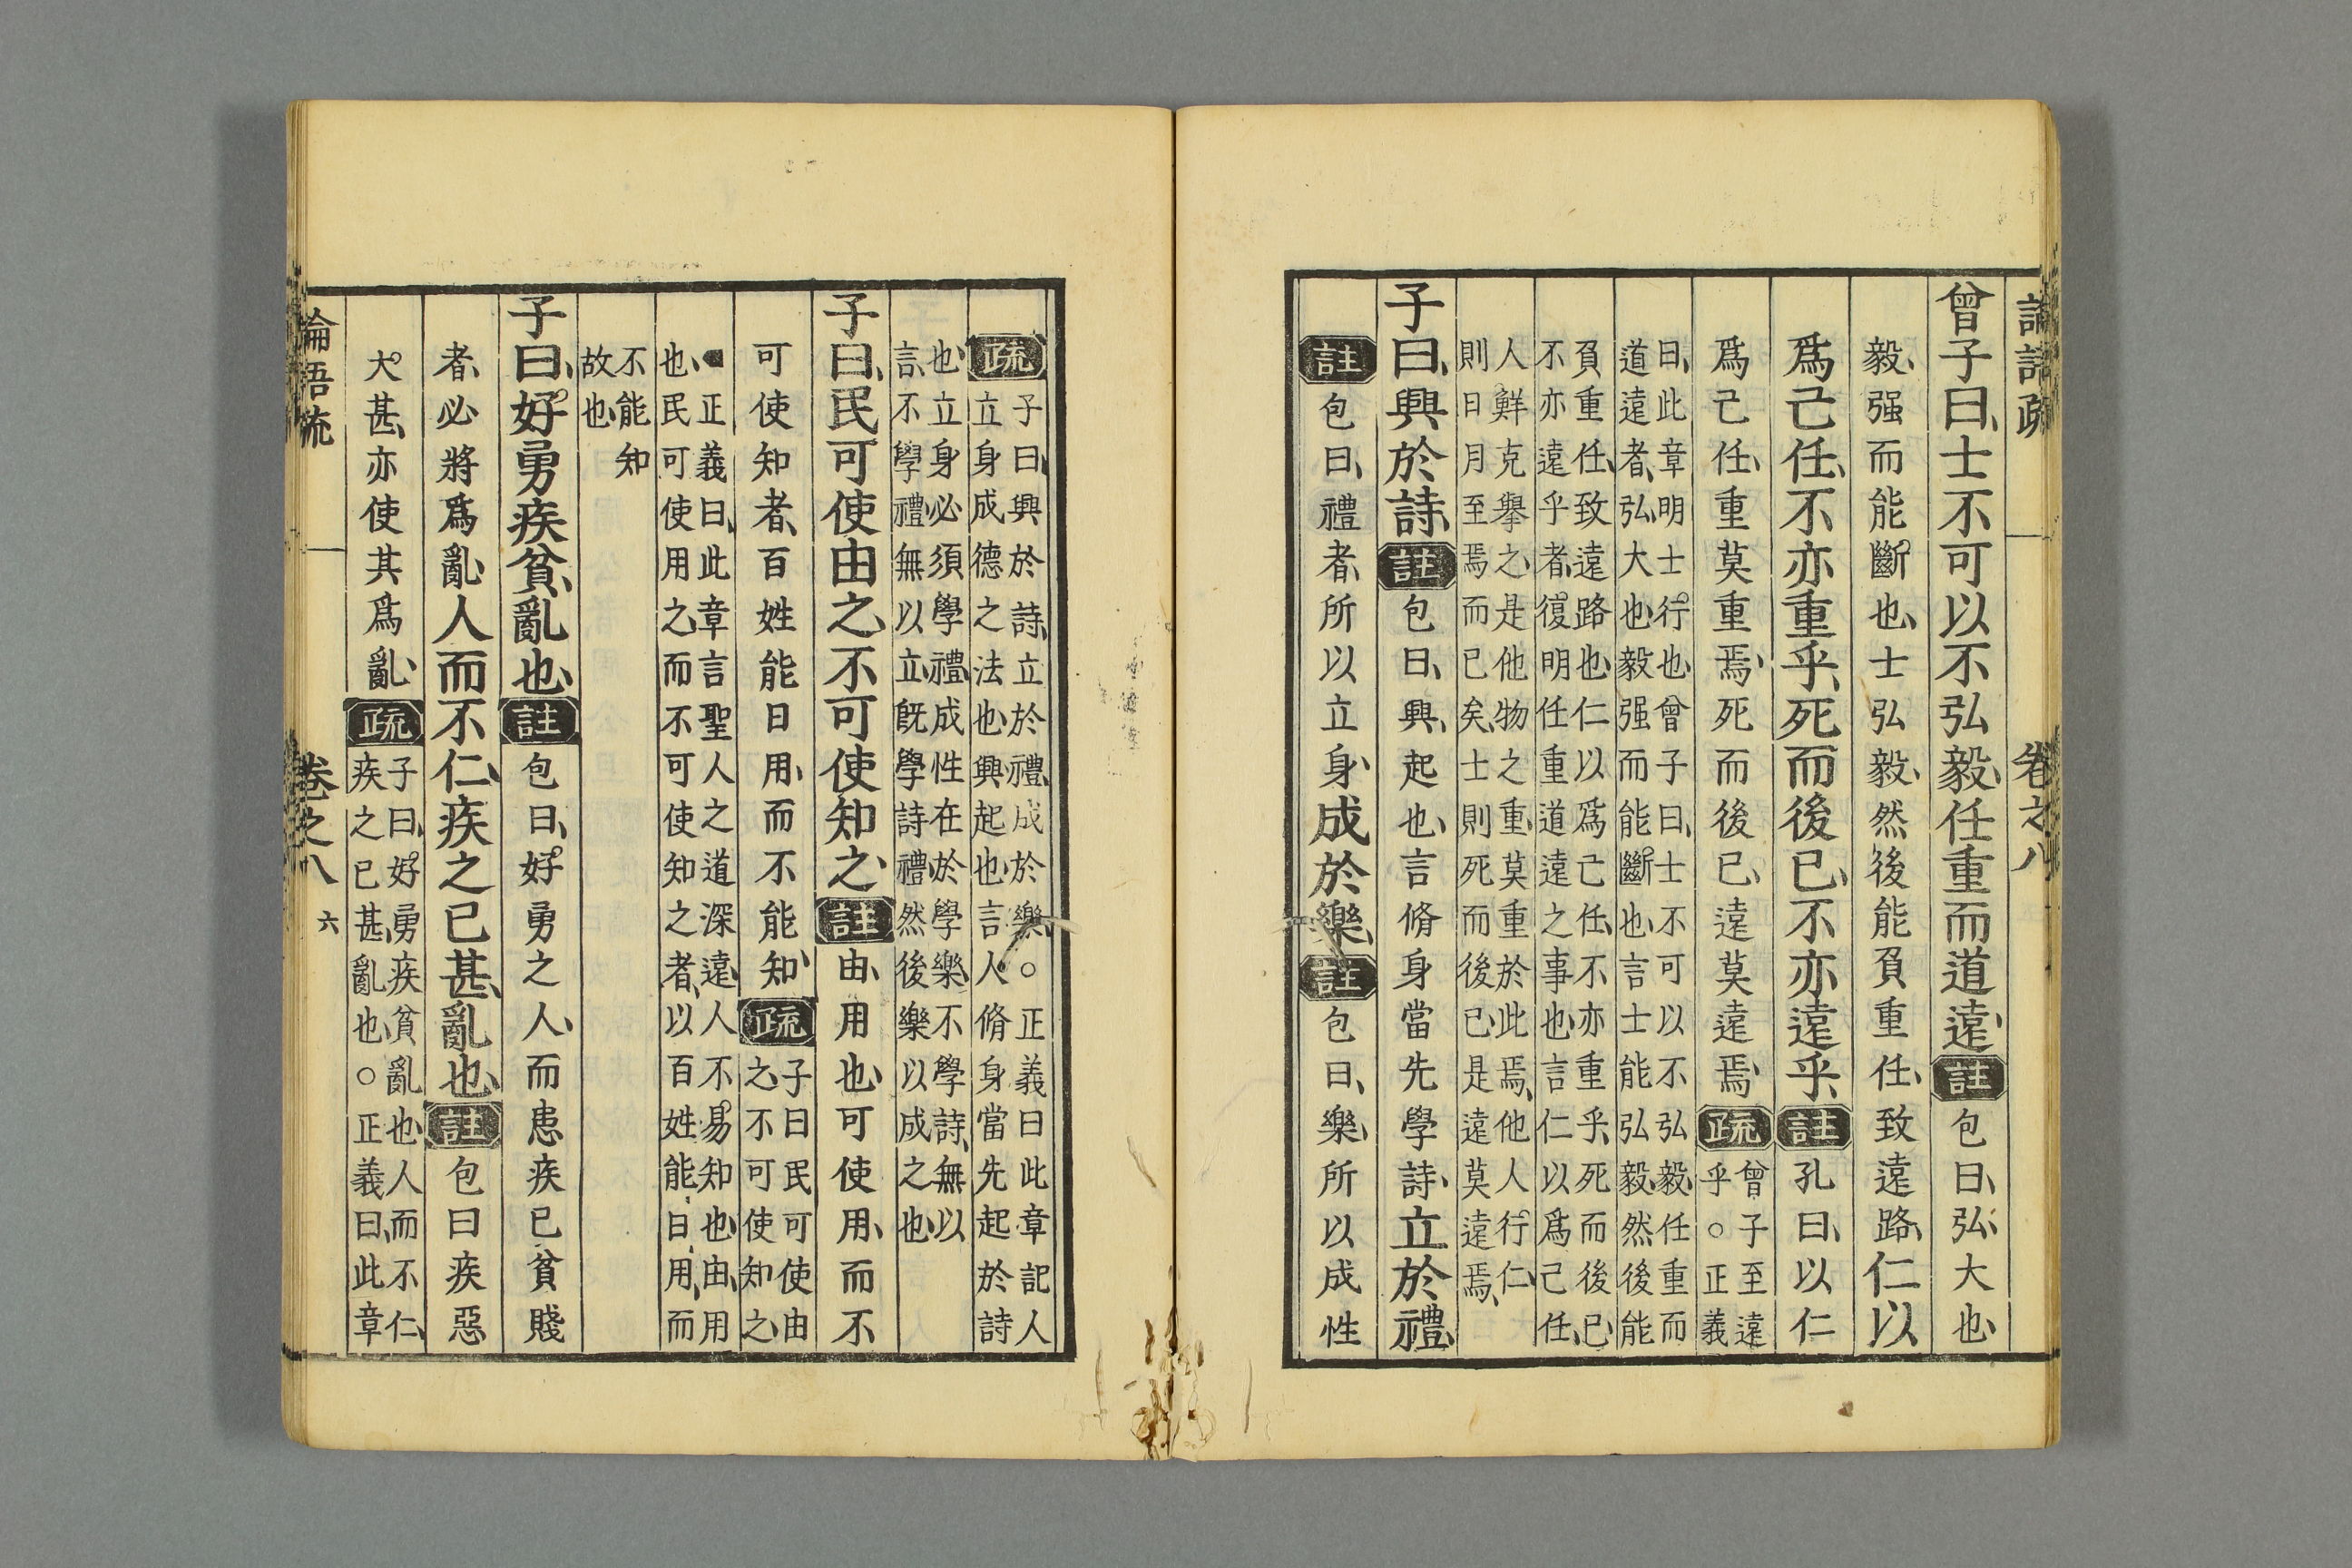 論語疏 卷之八
曾子曰、士不可以不弘毅、任重而道遠、註包曰、弘大也、
毅、强而能斷也、士弘毅、然後能負重任、致遠路、仁以
爲己任、不亦重乎、死而後已、不亦遠乎、註孔曰、以仁
爲己任、重莫重焉、死而後已、遠莫遠焉、疏曾子至遠
乎○正義
曰、此章明士行也、曾子曰、士不可以不弘毅、任重而
道遠者、弘大也、毅强而能斷也、言士能弘毅、然後能
負重任、致遠路也、仁以爲己任、不亦重乎、死而後已、
不亦遠乎者、復明任重道遠之事也、言仁以爲己任、
人鮮克舉之、是他物之重、莫重於此焉、他人行仁、
則日月至焉而已矣、士則死而後已、是遠莫遠焉、
子曰、興於詩、註包曰、興、起也、言脩身當先學詩、立於禮、
註包曰、禮者、所以立身、成於樂、註包曰、樂、所以成性
疏子曰、興於詩、立於禮、成於樂、○正義曰此章記人
立身成德之法也、興起也、言人脩身當先起於詩
也、立身必須學禮、成性在於學樂、不學詩、無以
言、不學禮、無以立、旣學詩禮、然後樂以成之也、
子曰、民可使由之、不可使知之、註由、用也、可使用、而不
可使知者、百姓能日用、而不能知、疏子曰民可使由
之、不可使知之、
正義曰、此章言聖人之道深遠、人不易知也、由、用
也、民可使用之、而不可使知之者、以百姓能日用、而
不能知
故也、
子曰、好勇疾貧、亂也、註包曰、好勇之人、而患疾已貧賤
者、必將爲亂、人而不仁、疾之已甚、亂也、註包曰疾惡
大甚、亦使其爲亂、疏子曰、好勇疾貧亂也、人而不仁、
疾之已甚、亂也、○正義曰、此章
論語疏 卷之八 六